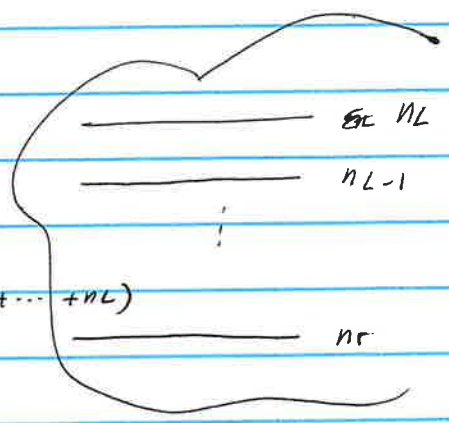 nL
nL-1
+ ... + nL)
nr